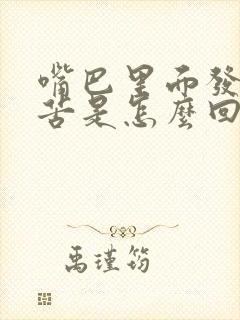 嘴巴里而發
苦是怎麼回
禹瑾筠